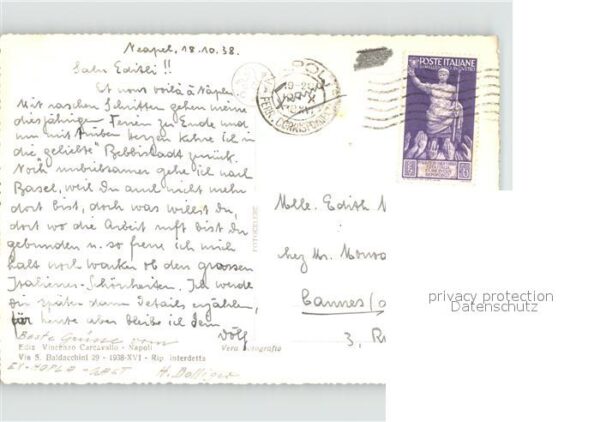 Neapel, 18.10.38.
Salü Edithli!!
Et nous voilà à Naples.
Mit raschen Schritten gehen meine
diesjährigen Ferien zu Ende und
nun mit trüben Herzen kehre ich in
die geliebte "Bebbistadt" zurück.
Noch unliebsamer gehe ich nach
Basel, weil Du auch nicht mehr
dort bist, doch was willst du,
dort wo die Arbeit ruft bist du
gebunden u. so freue ich mich
halt noch von den grossen
Italiener-Schönheiten. Ich werde
Dir später dann Details erzählen,
für heute aber bleibe ich Dein
Dölf
Beste Grüsse vom
Ediz. Vincenzo Carcavallo - Napoli
Via S. Baldacchini 29 - 1938-XVI - Rip. interdetta
H. Dolliger
Vera fotografia
POSTE ITALIANE
Mlle. Edith
chez Mr.
Cannes
3, R
privacy protection
Datenschutz